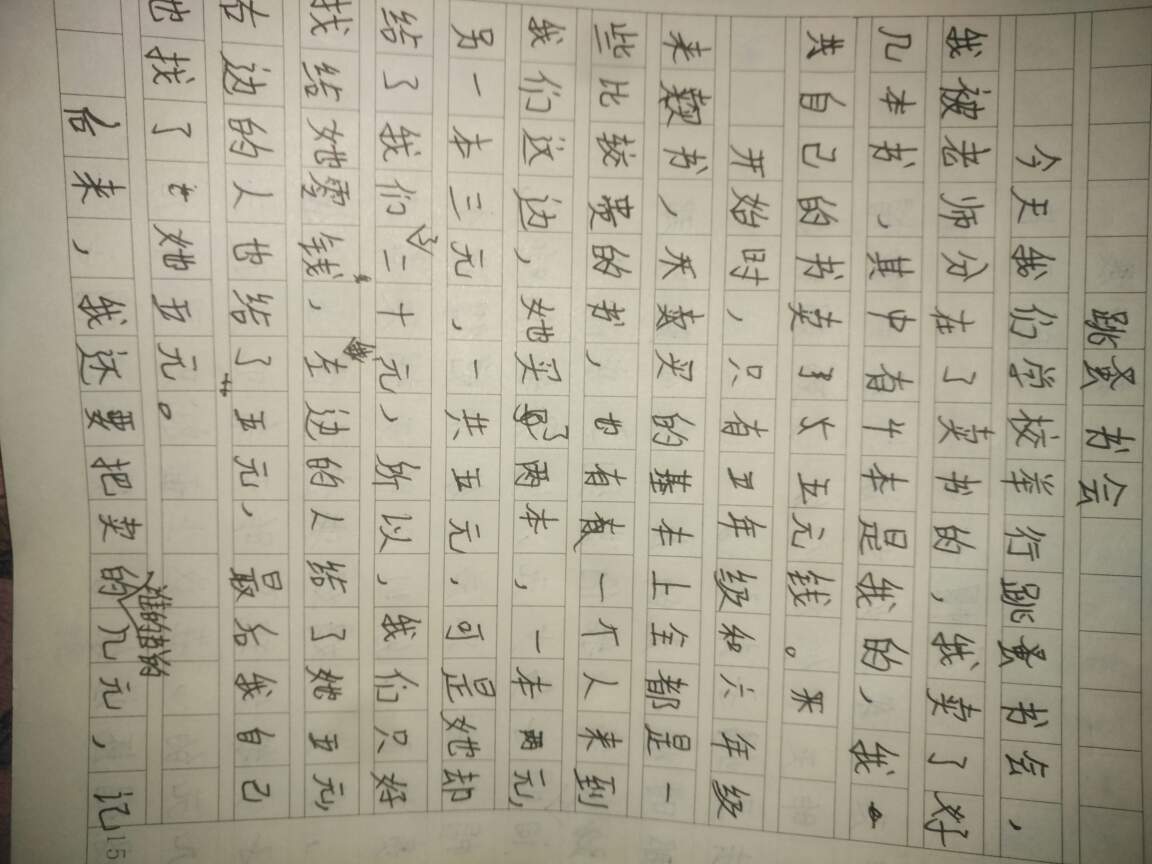 跳蚤书会
今天我们学校举行跳蚤书会，
我被老师分在了卖书的，我卖了好
几本书，其中有4本是我的，我
共自己的书卖了五元钱。
开始时，只有五年级和六年级
来买书，来卖买的基本上全都是一
些比较贵的书，也有一个人来到
我们这边，她买了两本，一本两元，
另一本三元，一共五元，可是她却
给了我们二十元，所以，我们只好
找给她零钱，左边的人给了她五元，
右边的人也给了五元，最后我自己
也找了她五元。
后来，我还要把卖的谁的几元，记
15